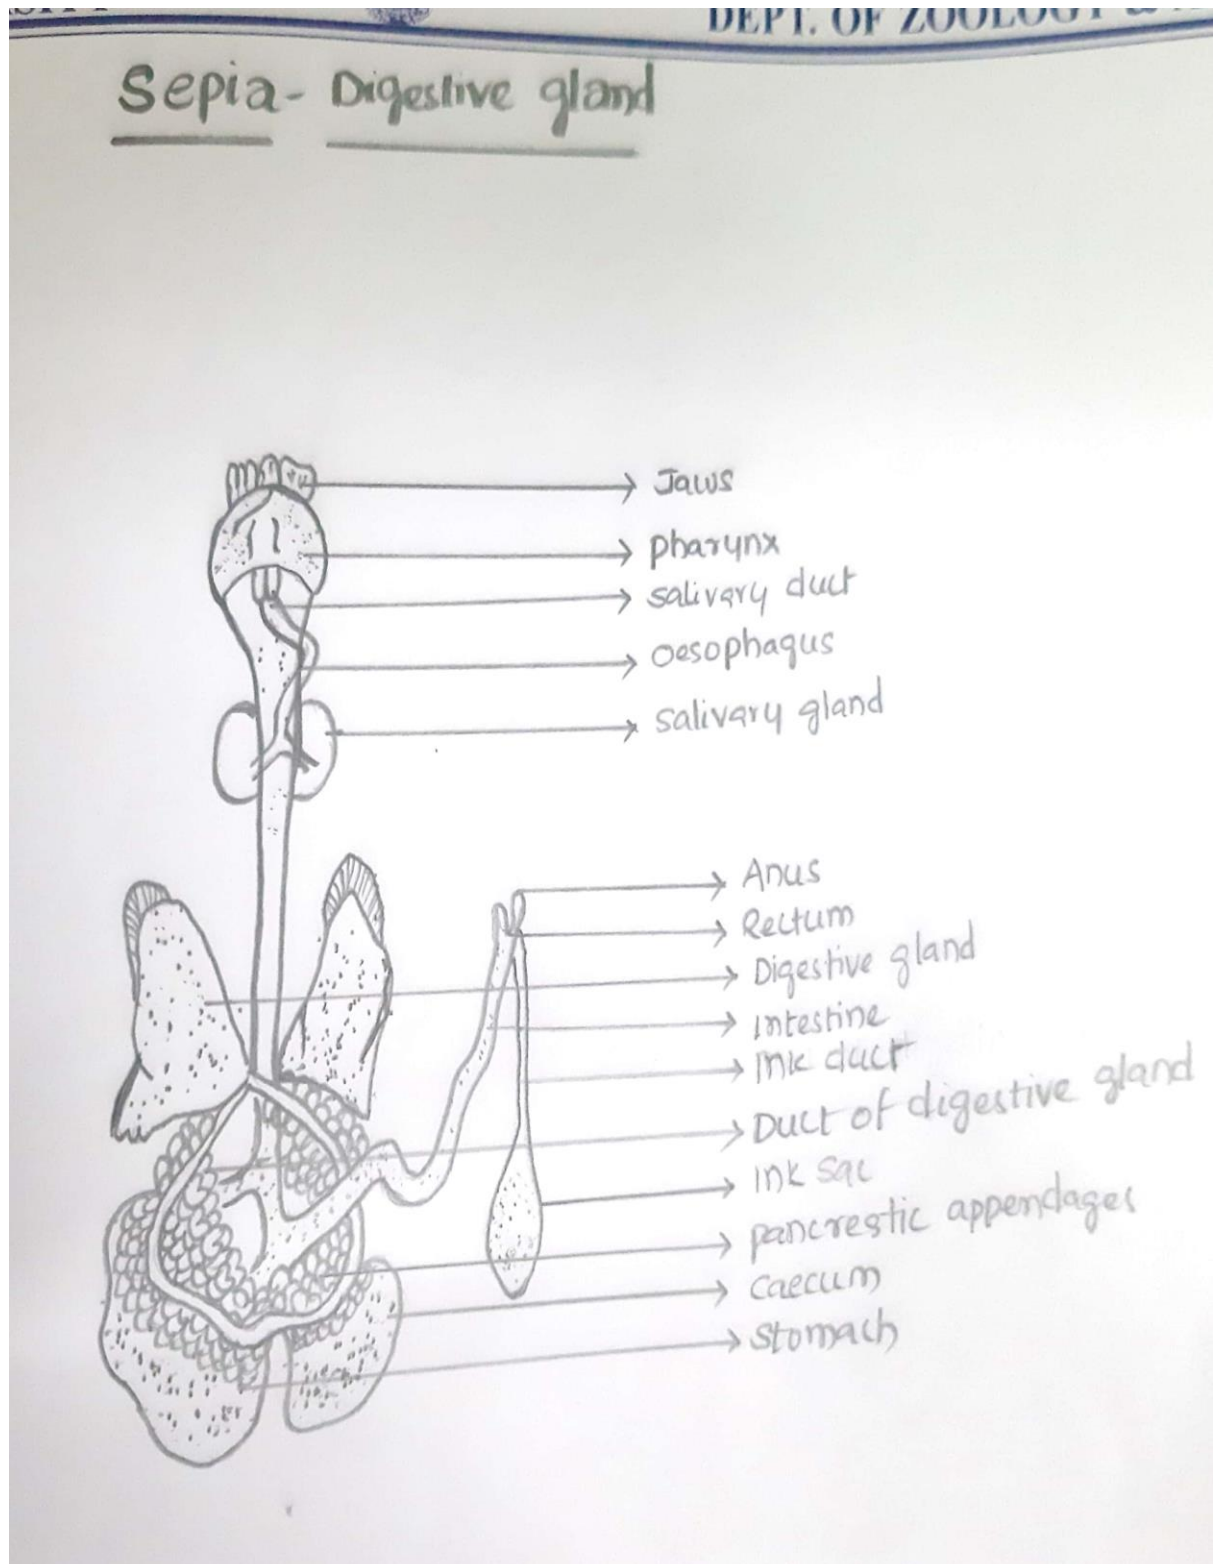 DEPT. OF ZOOLOGY &
Sepia - Digestive gland
Jaws
pharynx
salivary duct
oesophagus
salivary gland
Anus
Rectum
Digestive gland
Intestine
Ink duct
Duct of digestive gland
Ink sac
pancrestic appendages
caecum
stomach